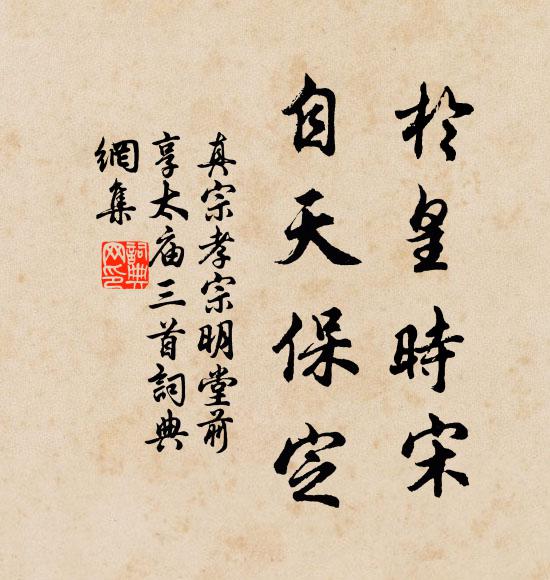 於皇時宋
自天保定
真宗孝宗明堂前
享太庙三首詞典
網集
詞典網印